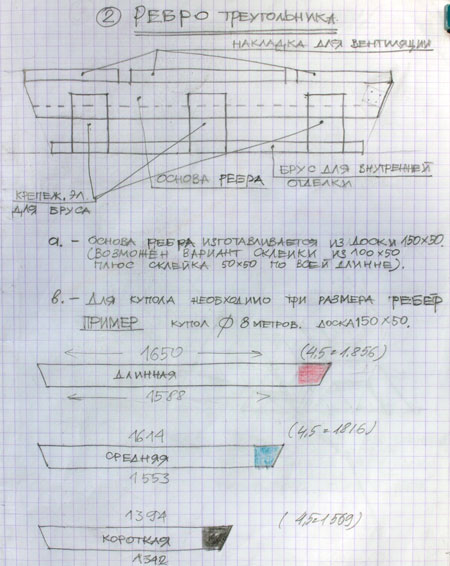 ② РЕБРО ТРЕУГОЛЬНИКА.
НАКЛАДКА ДЛЯ ВЕНТИЛЯЦИИ
КРЕПЕЖ. ЭЛ.
ДЛЯ БРУСА
ОСНОВА РЕБРА
БРУС ДЛЯ ВНУТРЕННЕЙ
ОТДЕЛКИ
а. - ОСНОВА РЕБРА ИЗГОТАВЛИВАЕТСЯ ИЗ ДОСКИ 150×50.
(ВОЗМОЖЕН ВАРИАНТ СКЛЕЙКИ ИЗ 100×50
ПЛЮС СКЛЕЙКА 50×50 ПО ВСЕЙ ДЛИННЕ).
в. - ДЛЯ КУПОЛА НЕОБХОДИМО ТРИ РАЗМЕРА РЕБЕР
ПРИМЕР КУПОЛ Ø 8 МЕТРОВ. ДОСКА 150×50.
1650 (4,5=1.856)
ДЛИННАЯ
1588
1614 (4,5=1816)
СРЕДНЯЯ
1553
1394 (4,5=1569)
КОРОТКАЯ
1342